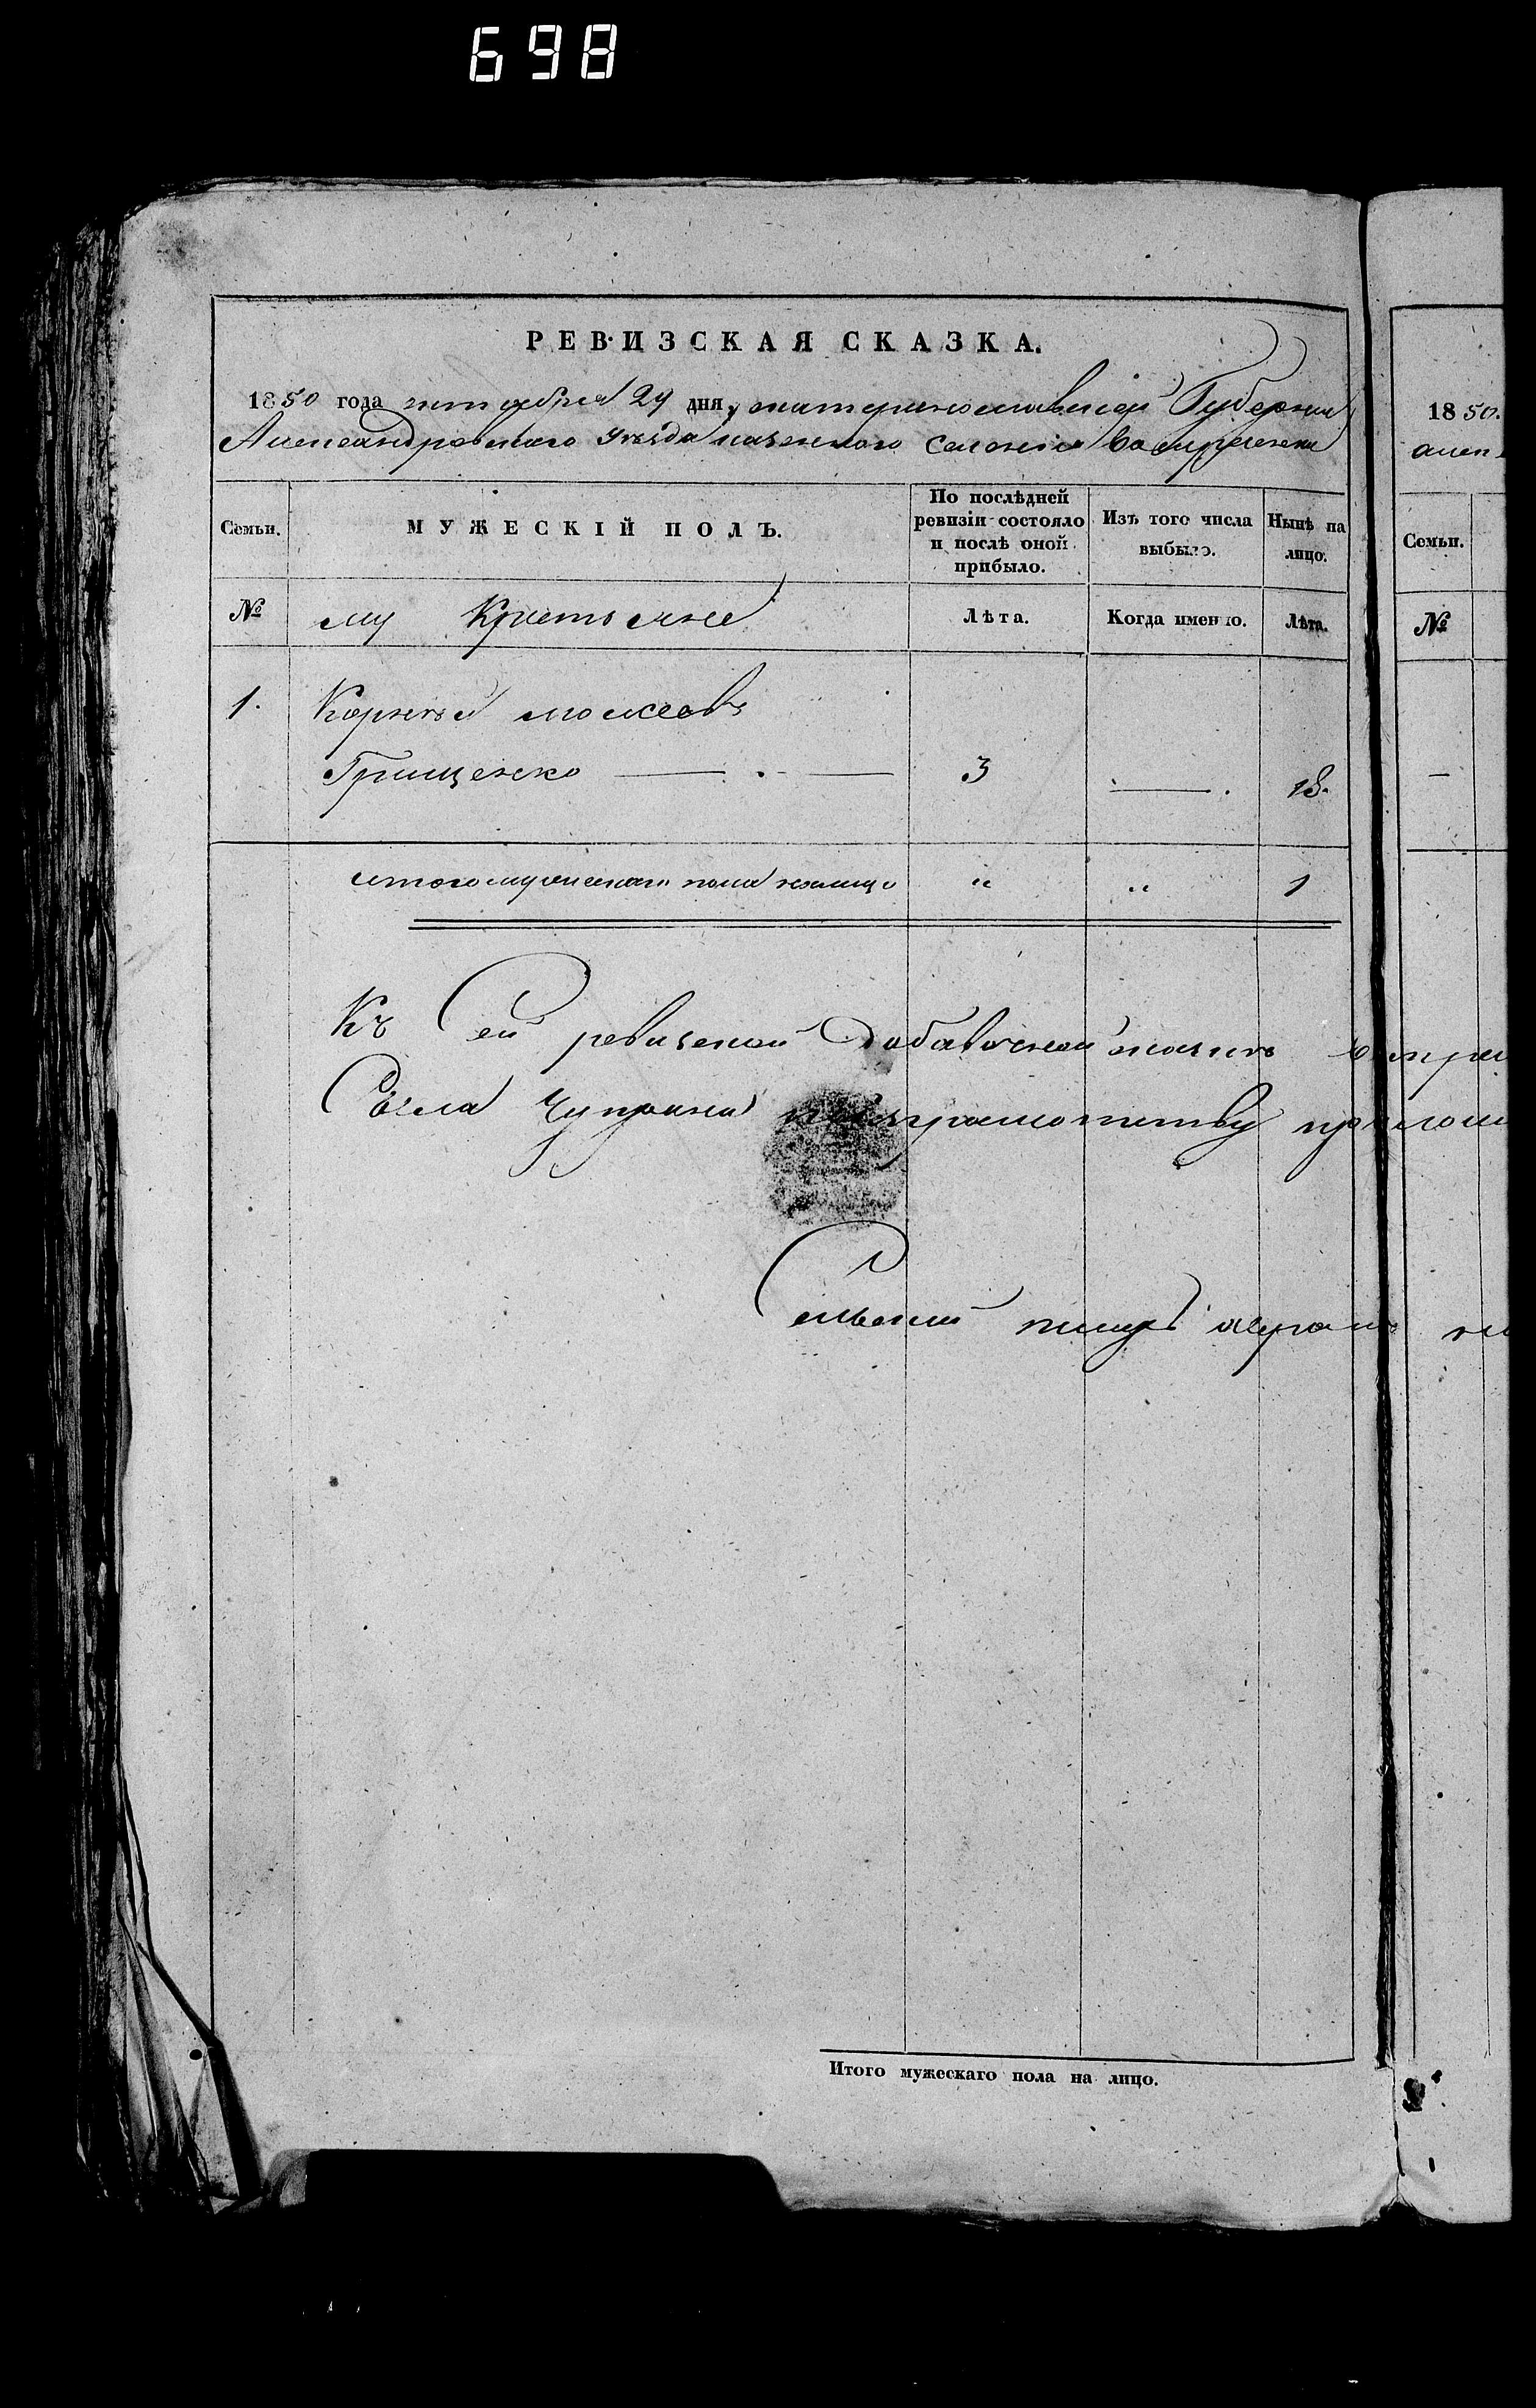 698
РЕВИЗСКАЯ СКАЗКА.
1850 года октября 29 дня, Екатеринославской Губернии
Александровского уезда казенного Селения Воскресенки
Семьи.
МУЖЕСКІЙ ПОЛЪ.
По послѣдней ревизіи состояло и послѣ оной прибыло.
Изъ того числа выбыло.
Нынѣ на лицо.
№
Лѣта.
Когда именно.
Лѣта.
1. Корней Моисеевъ
Грищенко 3 18.
итого мужескаго пола налицо " " 1
Къ Сей ревизской добавочной
Села Чуприна неграмотству
Сельский писарь
Итого мужескаго пола на лицо.
1850.
Семьи.
№